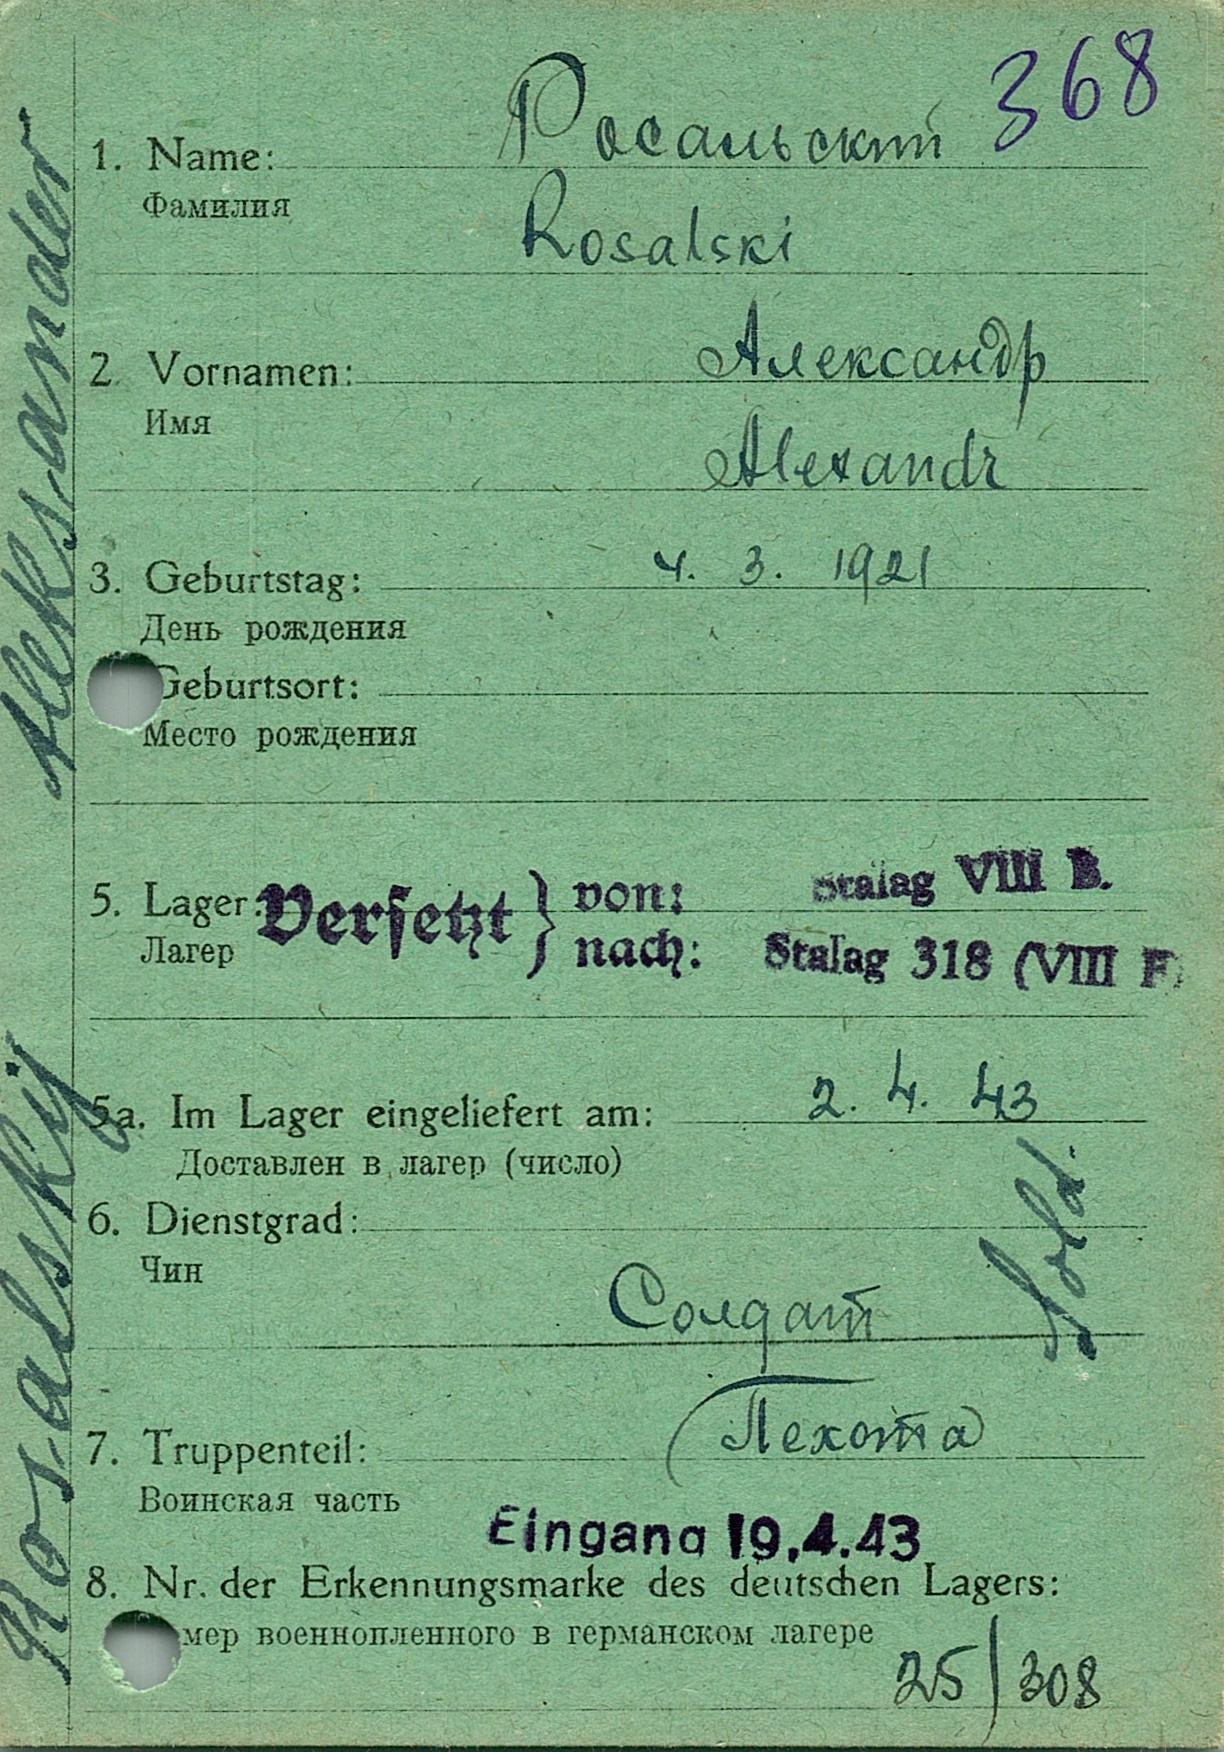 368
1. Name: Росальский
Фамилия
Rosalski
2. Vornamen: Александр
Имя
Alexandr
3. Geburtstag: 4. 3. 1921
День рождения
Geburtsort:
Место рождения
5. Lager: Versetzt } von: Stalag VIII B.
Лагер nach: Stalag 318 (VIII F)
5a. Im Lager eingeliefert am: 2. 4. 43
Доставлен в лагер (число)
6. Dienstgrad: Sold.
Чин
Солдат
7. Truppenteil: Пехота
Воинская часть
Eingang 19.4.43
8. Nr. der Erkennungsmarke des deutschen Lagers:
мер военнопленного в германском лагере
25/308
Rosalskij Aleksander